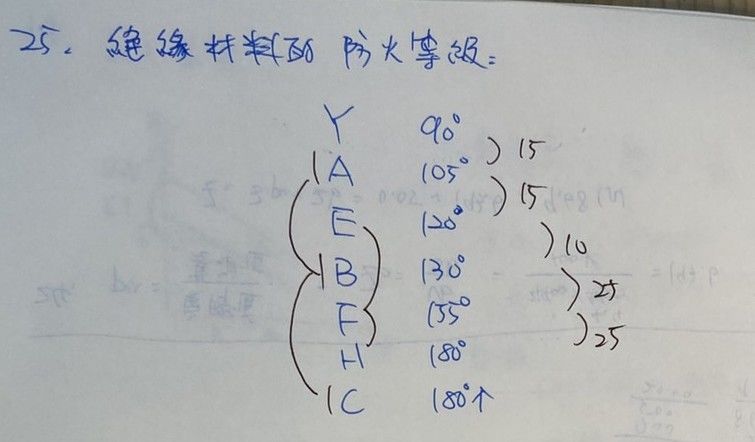 25. 絕緣材料的防火等級:
Y 90°
A 105°
E 120°
B 130°
F 155°
H 180°
C 180°↑
) 15
) 15
) 10
) 25
) 25